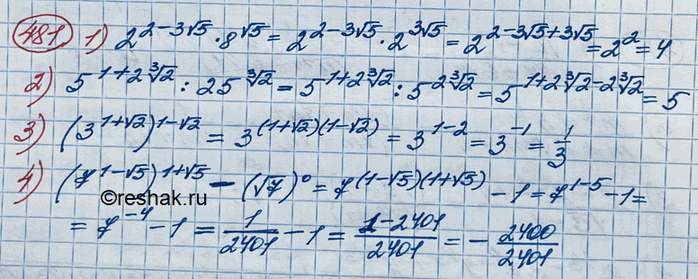 481 1) 2^{2-3√5} · 8^{√5} = 2^{2-3√5} · 2^{3√5} = 2^{2-3√5+3√5} = 2^2 = 4
2) 5^{1+2∛2} : 25^{∛2} = 5^{1+2∛2} : 5^{2∛2} = 5^{1+2∛2-2∛2} = 5
3) (3^{1+√2})^{1-√2} = 3^{(1+√2)(1-√2)} = 3^{1-2} = 3^{-1} = 1/3
4) (7^{1-√5})^{1+√5} - (√7)^0 = 7^{(1-√5)(1+√5)} - 1 = 7^{1-5} - 1 =
©reshak.ru
= 7^{-4} - 1 = 1/2401 - 1 = 1-2401/2401 = - 2400/2401